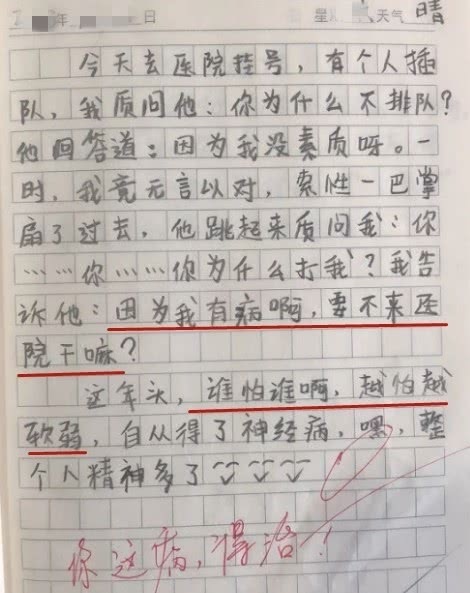 年 日 星 天气 晴
今天去医院挂号，有个人插
队，我质问他：你为什么不排队？
他回答道：因为我没素质呀。一
时，我竟无言以对，索性一巴掌
扇了过去，他跳起来质问我：你
……你……你为什么打我？我告
诉他：因为我有病啊，要不来医
院干嘛？
这年头，谁怕谁啊，越怕越
软弱，自从得了神经病，嘿，整
个人精神多了
你这病，得治！